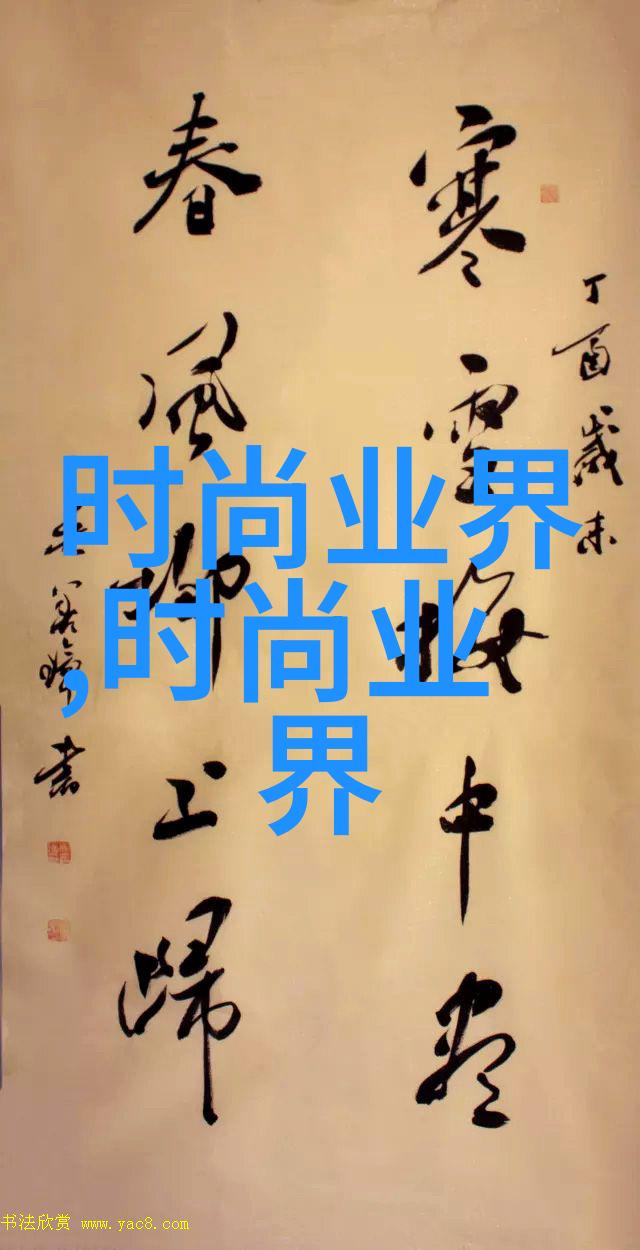 丁酉岁末
寒雪梅中尽
春风柳上归
书
时尚业界
,时尚业
界
书法欣赏 www.yac8.com